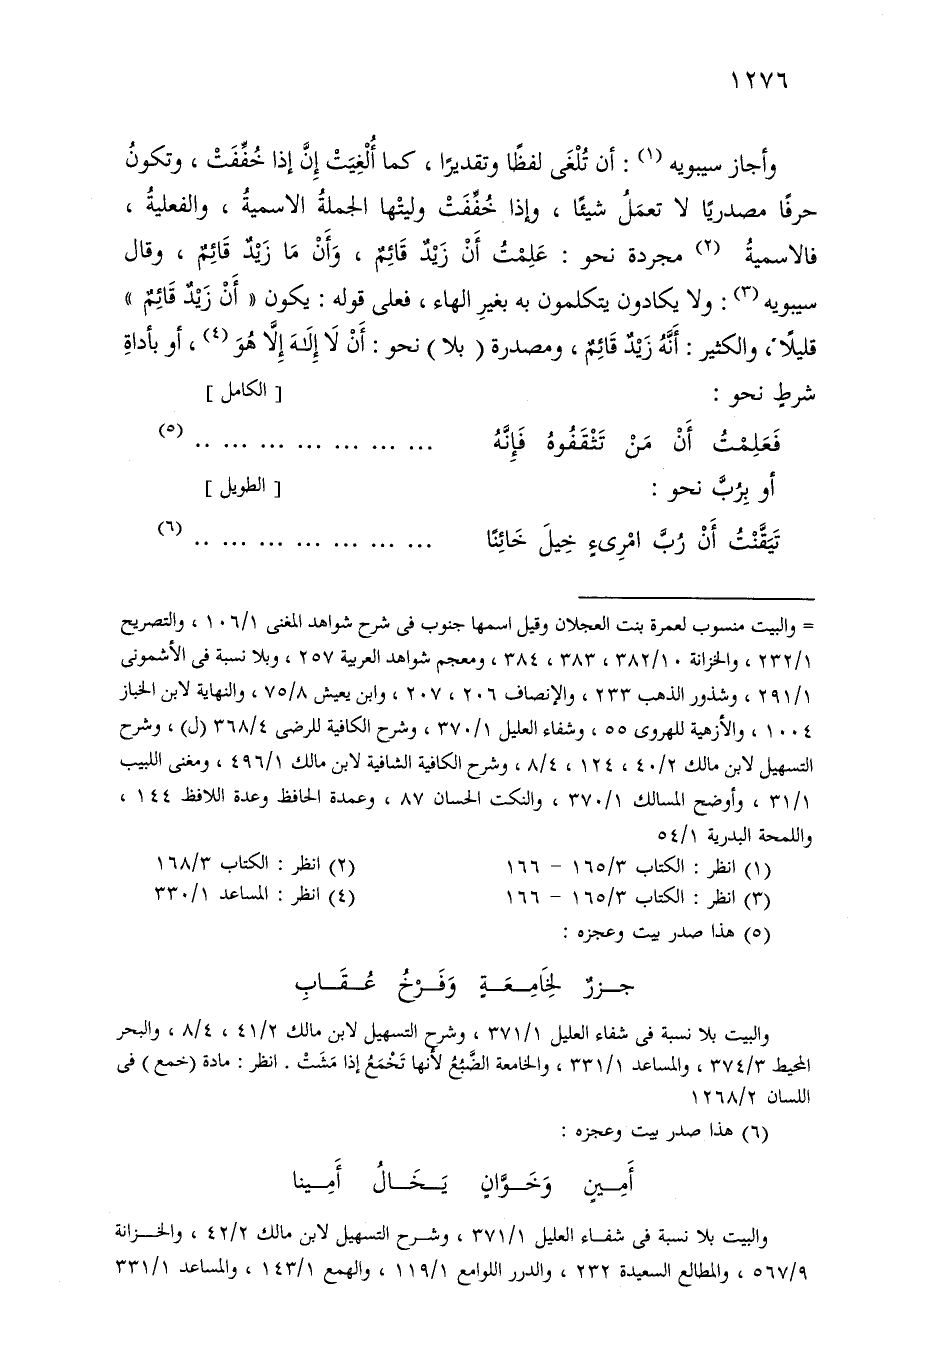 ١٢٧٦
وأجاز سيبويه (١) : أن تُلْغَى لفظًا وتقديرًا ، كما أُلْغِيَتْ إِنَّ إذا خُفِّفَتْ ، وتكونُ
حرفًا مصدريًا لا تعمَلُ شيئًا ، وإذا خُفِّفَتْ وليتْها الجملةُ الاسميةُ ، والفعليةُ ،
فالاسميةُ (٢) مجردة نحو : عَلِمْتُ أَنْ زَيْدٌ قَائِمٌ ، وَأَنْ مَا زَيْدٌ قَائِمٌ ، وقال
سيبويه (٣) : ولا يكادون يتكلمون به بغيرِ الهاء ، فعلى قوله : يكون « أَنْ زَيْدٌ قَائِمٌ »
قليلًا ، والكثير : أَنَّهُ زَيْدٌ قَائِمٌ ، ومصدرة ( بلا ) نحو : أَنْ لَا إِلَـٰهَ إِلَّا هُوَ (٤) ، أو بأداةِ
شرطٍ نحو : [ الكامل ]
فَعَلِمْتُ أَنْ مَنْ تَثْقَفُوهُ فَإِنَّهُ ... ... ... ... ... ... .. (٥)
أو بِرُبَّ نحو : [ الطويل ]
تَيَقَّنْتُ أَنْ رُبَّ امْرِىءٍ خِيلَ خَائِنًا ... ... ... ... ... ... .. (٦)
= والبيت منسوب لعمرة بنت العجلان وقيل اسمها جنوب فى شرح شواهد المغنى ١٠٦/١ ، والتصريح
٢٣٢/١ ، والخزانة ٣٨٢/١٠ ، ٣٨٣ ، ٣٨٤ ، ومعجم شواهد العربية ٢٥٧ ، وبلا نسبة فى الأشمونى
٢٩١/١ ، وشذور الذهب ٢٣٣ ، والإنصاف ٢٠٦ ، ٢٠٧ ، وابن يعيش ٧٥/٨ ، والنهاية لابن الخباز
١٠٠٤ ، والأزهية للهروى ٥٥ ، وشفاء العليل ٣٧٠/١ ، وشرح الكافية للرضى ٣٦٨/٤ (ل) ، وشرح
التسهيل لابن مالك ٤٠/٢ ، ١٢٤ ، ٨/٤ ، وشرح الكافية الشافية لابن مالك ٤٩٦/١ ، ومغنى اللبيب
٣١/١ ، وأوضح المسالك ٣٧٠/١ ، والنكت الحسان ٨٧ ، وعمدة الحافظ وعدة اللافظ ١٤٤ ،
واللمحة البدرية ٥٤/١
(١) انظر : الكتاب ١٦٥/٣ – ١٦٦ (٢) انظر : الكتاب ١٦٨/٣
(٣) انظر : الكتاب ١٦٥/٣ – ١٦٦ (٤) انظر : المساعد ٣٣٠/١
(٥) هذا صدر بيت وعجزه :
جــزرٌ لِخَامِـعَــةٍ وَفَـرْخُ عُـقَــابِ
والبيت بلا نسبة فى شفاء العليل ٣٧١/١ ، وشرح التسهيل لابن مالك ٤١/٢ ، ٨/٤ ، والبحر
المحيط ٣٧٤/٣ ، والمساعد ٣٣١/١ ، والخامعة الضَّبُعُ لأنها تَخْمَعُ إذا مَشَتْ . انظر : مادة (خمع) فى
اللسان ١٢٦٨/٢
(٦) هذا صدر بيت وعجزه :
أَمِـينٍ وَخَـوَّانٍ يَـخَـالُ أَمِـينا
والبيت بلا نسبة فى شفــاء العليل ٣٧١/١ ، وشــرح التسهيل لابن مالك ٤٢/٢ ، والخــزانة
٥٦٧/٩ ، والمطالع السعيدة ٢٣٢ ، والدرر اللوامع ١١٩/١ ، والهمع ١٤٣/١ ، والمساعد ٣٣١/١